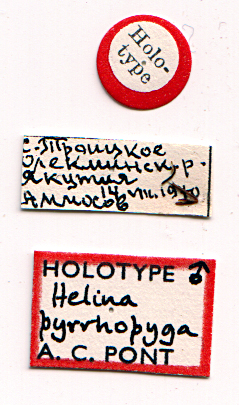 Holo-
type
с. Троицкое
Олеклинск. р.
Якутия
14.VIII.19
Аммосов
HOLOTYPE ♂
Helina
pyrrhopyga
A. C. PONT